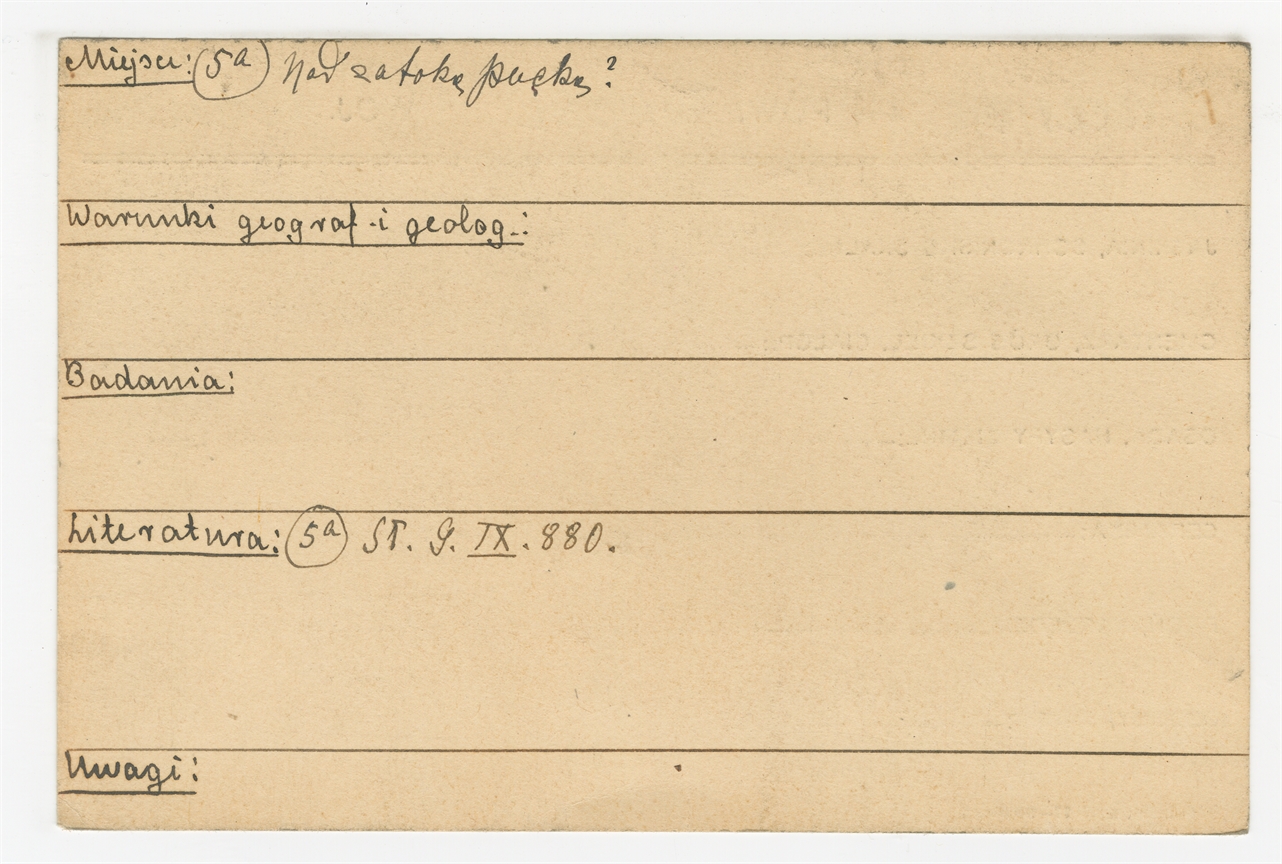 Miejsce: (5a) Nad zatoką pucką?
Warunki geograf. i geolog.:
Badania:
Literatura: (5a) St. G. IX. 880.
Uwagi: